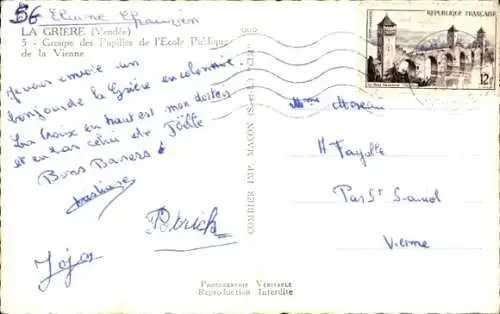 56
LA GRIERE (Vendée)
5 - Groupe des Pupilles de l'Ecole Publique
de la Vienne
Je vous envoie un
bonjour de la Grière en colonie.
La Croix en haut est mon dortoir
et en bas celui de Joëlle
Bons Baisers
Patrick
Jojo
COMBIER IMP. MACON (S.-et-L.) "CIM"
REPUBLIQUE FRANÇAISE
12F
Mme Moreau
H Fayolle
Par St Saviol
Vienne
PHOTOGRAPHIE VÉRITABLE
Reproduction Interdite